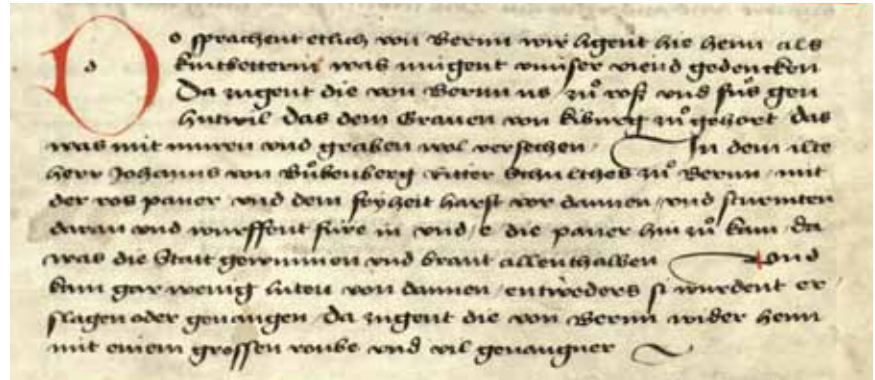 Do sprachent etlich von Bernn wir ligent hie heim als
kintbetterin was mugent unnser viend gedencken
Da zugent die von Bernn us zů ross und fůs gen
hutwil das dem Grauen von kiburg zů gehort das
was mit muren und graben wol versechen / In dem ilte
herr Johanns von Bůbenberg ritter Schultheis zů Bernn / mit
der ros paner und dem fryheit harst vor dannen / und sturmten
daran und wurffent füre in und / e / die paner hin zů kam / da
was die Statt gewunnen und brant allenthalben Und
kam gar wenig luten von dannen / entweders si wurdent er /
slagen oder geuangen / Da zugent die von Bernn wider heim
mit einem grossen roube und vil geuangner